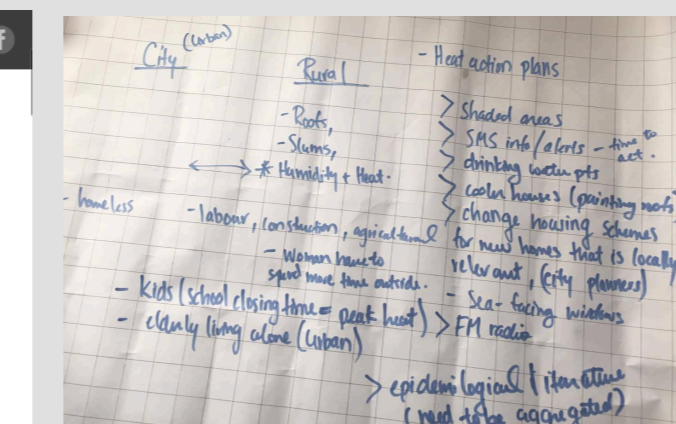 City (Urban)
Rural
- Roofs,
- Slums,
* Humidity + Heat.
- homeless
- labour, construction, agricultural
- Women have to
spend more time outside.
- kids (school closing time = peak heat)
- elderly living alone (Urban)
- Heat action plans
> Shaded areas
> SMS info/alerts - time to
act.
> drinking water pts
> cooler houses (painting roofs)
> change housing schemes
for new homes that is locally
relevant, (city planners)
- Sea-facing windows
> FM radio
> epidemilogical literature
(need to be aggregated)
f